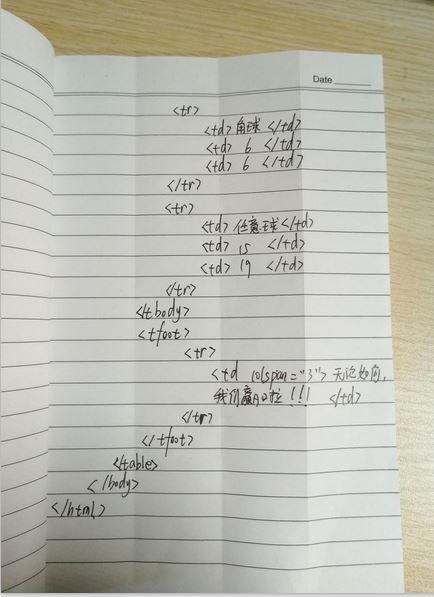 Date
<tr>
<td> 角球 </td>
<td> 6 </td>
<td> 6 </td>
</tr>
<tr>
<td> 任意球 </td>
<td> 15 </td>
<td> 19 </td>
</tr>
</tbody>
<tfoot>
<tr>
<td colspan="3"> 无论如何,
我们赢 啦!!! </td>
</tr>
</tfoot>
</table>
</body>
</html>